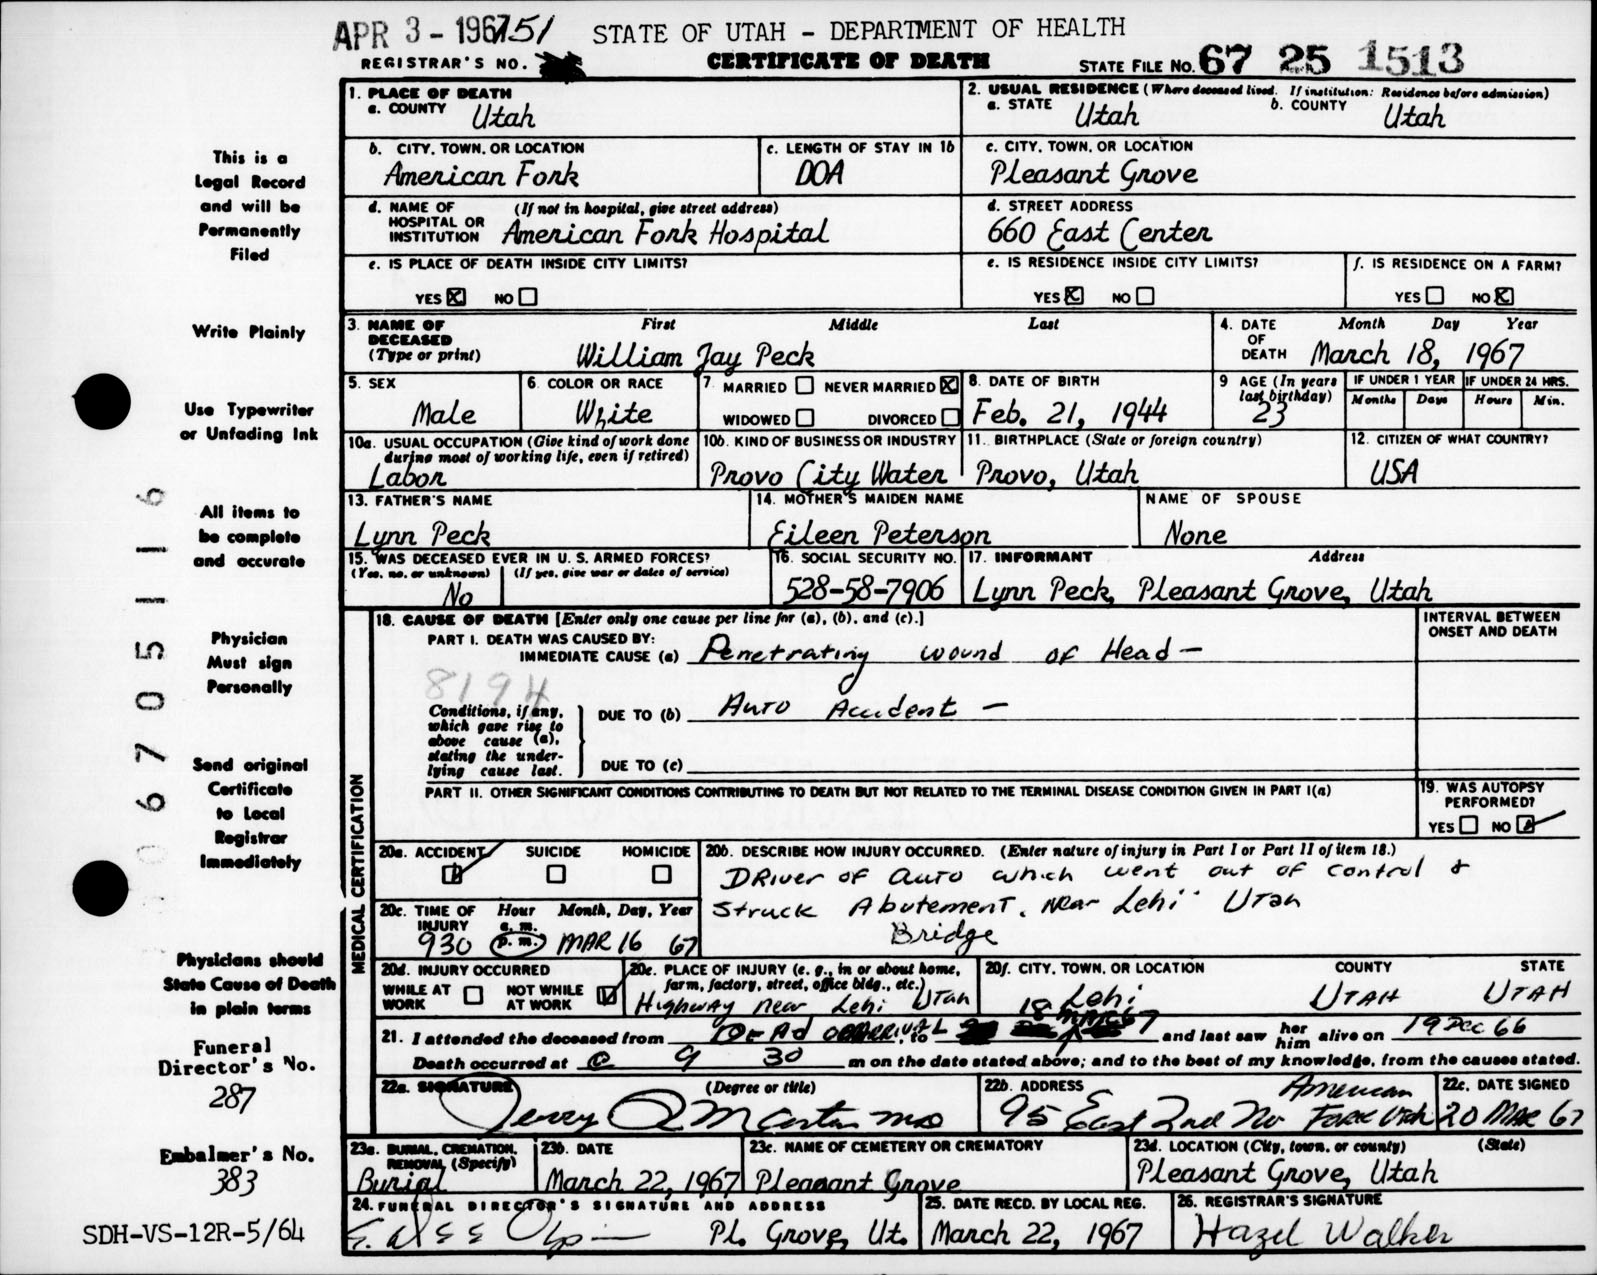 APR 3 - 1967 151 STATE OF UTAH - DEPARTMENT OF HEALTH
REGISTRAR'S NO. CERTIFICATE OF DEATH STATE FILE NO. 67 25 1513
1. PLACE OF DEATH
a. COUNTY Utah
2. USUAL RESIDENCE (Where deceased lived. If institution: Residence before admission)
a. STATE Utah b. COUNTY Utah
b. CITY, TOWN, OR LOCATION American Fork
c. LENGTH OF STAY IN 1b DOA
c. CITY, TOWN, OR LOCATION Pleasant Grove
d. NAME OF HOSPITAL OR INSTITUTION (If not in hospital, give street address) American Fork Hospital
d. STREET ADDRESS 660 East Center
e. IS PLACE OF DEATH INSIDE CITY LIMITS?
YES X NO
e. IS RESIDENCE INSIDE CITY LIMITS?
YES X NO
f. IS RESIDENCE ON A FARM?
YES NO X
3. NAME OF DECEASED (Type or print) First Middle Last
William Jay Peck
4. DATE OF DEATH Month Day Year
March 18, 1967
5. SEX Male
6. COLOR OR RACE White
7. MARRIED NEVER MARRIED X
WIDOWED DIVORCED
8. DATE OF BIRTH Feb. 21, 1944
9 AGE (In years last birthday) 23
IF UNDER 1 YEAR Months Days
IF UNDER 24 HRS. Hours Min.
10a. USUAL OCCUPATION (Give kind of work done during most of working life, even if retired)
Labor
10b. KIND OF BUSINESS OR INDUSTRY
Provo City Water
11. BIRTHPLACE (State or foreign country)
Provo, Utah
12. CITIZEN OF WHAT COUNTRY?
USA
13. FATHER'S NAME
Lynn Peck
14. MOTHER'S MAIDEN NAME
Eileen Peterson
NAME OF SPOUSE
None
15. WAS DECEASED EVER IN U. S. ARMED FORCES?
(Yes, no, or unknown) (If yes, give war or dates of service)
No
16. SOCIAL SECURITY NO.
528-58-7906
17. INFORMANT Address
Lynn Peck, Pleasant Grove, Utah
MEDICAL CERTIFICATION
18. CAUSE OF DEATH [Enter only one cause per line for (a), (b), and (c).]
INTERVAL BETWEEN ONSET AND DEATH
PART I. DEATH WAS CAUSED BY:
IMMEDIATE CAUSE (a) Penetrating wound of Head -
8194
Conditions, if any, which gave rise to above cause (a), stating the underlying cause last.
DUE TO (b) Auto Accident -
DUE TO (c)
PART II. OTHER SIGNIFICANT CONDITIONS CONTRIBUTING TO DEATH BUT NOT RELATED TO THE TERMINAL DISEASE CONDITION GIVEN IN PART I(a)
19. WAS AUTOPSY PERFORMED?
YES NO
20a. ACCIDENT SUICIDE HOMICIDE
20b. DESCRIBE HOW INJURY OCCURRED. (Enter nature of injury in Part I or Part II of item 18.)
Driver of auto which went out of control &
Struck Abutement. Near Lehi Utah
Bridge
20c. TIME OF INJURY Hour Month, Day, Year
a. m.
930 p. m. MAR 16 67
20d. INJURY OCCURRED
WHILE AT WORK NOT WHILE AT WORK
20e. PLACE OF INJURY (e. g., in or about home, farm, factory, street, office bldg., etc.)
Highway near Lehi Utah
20f. CITY, TOWN, OR LOCATION COUNTY STATE
Lehi UTAH UTAH
18 MAR 67
21. I attended the deceased from DEAD ON ARRIVAL to and last saw her him alive on 19 Dec 66
Death occurred at @ 9 30 m on the date stated above; and to the best of my knowledge, from the causes stated.
22a. SIGNATURE (Degree or title)
22b. ADDRESS 95 East 2nd No American Fork Utah
22c. DATE SIGNED 20 MAR 67
23a. BURIAL, CREMATION, REMOVAL (Specify)
Burial
23b. DATE
March 22, 1967
23c. NAME OF CEMETERY OR CREMATORY
Pleasant Grove
23d. LOCATION (City, town, or county) (State)
Pleasant Grove, Utah
24. FUNERAL DIRECTOR'S SIGNATURE AND ADDRESS
Pl. Grove, Ut.
25. DATE RECD. BY LOCAL REG.
March 22, 1967
26. REGISTRAR'S SIGNATURE
Hazel Walker
This is a
Legal Record
and will be
Permanently
Filed
Write Plainly
Use Typewriter
or Unfading Ink
All items to
be complete
and accurate
Physician
Must sign
Personally
Send original
Certificate
to Local
Registrar
Immediately
Physicians should
State Cause of Death
in plain terms
Funeral
Director's No.
287
Embalmer's No.
383
SDH-VS-12R-5/64